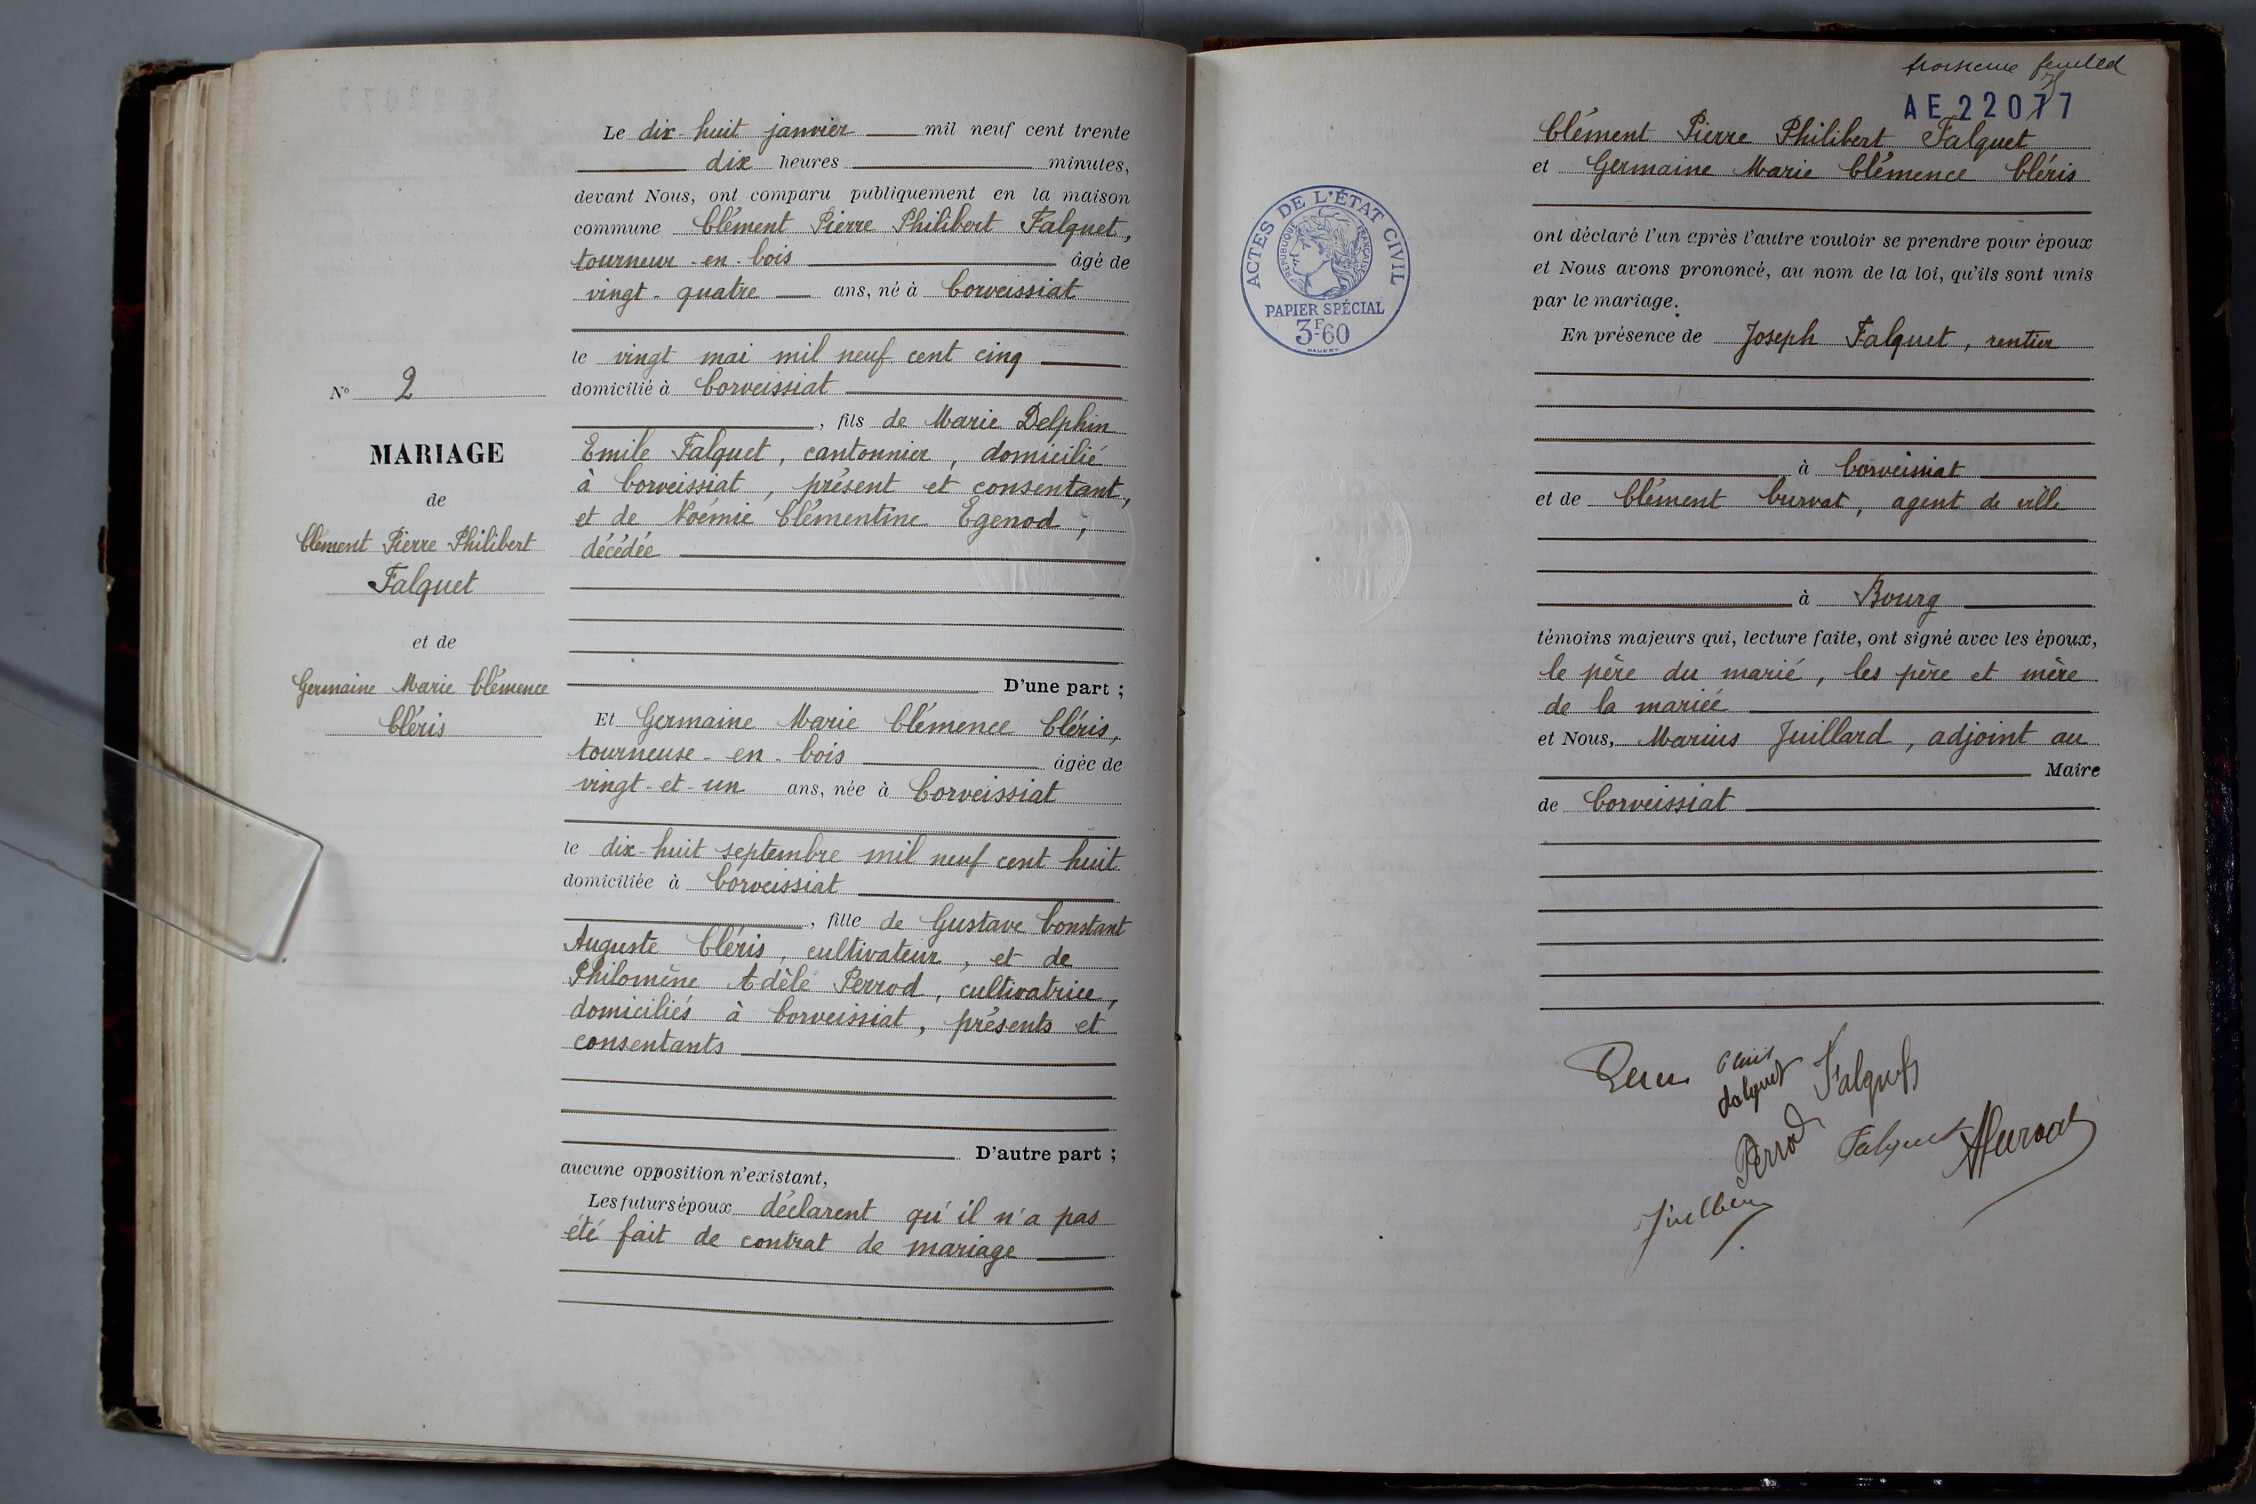 Le dix-huit janvier mil neuf cent trente
dix heures minutes,
devant Nous, ont comparu publiquement en la maison
commune Clément Pierre Philibert Falquet,
tourneur-en-bois âgé de
vingt-quatre ans, né à Corveissiat
le vingt mai mil neuf cent cinq
domicilié à Corveissiat
, fils de Marie Delphin
Emile Falquet, cantonnier, domicilié
à Corveissiat, présent et consentant,
et de Noémie Clémentine Egenod,
décédée
D'une part ;
Et Germaine Marie Clémence Cléris,
tourneuse-en-bois âgée de
vingt-et-un ans, née à Corveissiat
le dix-huit septembre mil neuf cent huit
domiciliée à Corveissiat
, fille de Gustave Constant
Auguste Cléris, cultivateur, et de
Philomène Adèle Perrod, cultivatrice,
domiciliés à Corveissiat, présents et
consentants
D'autre part ;
aucune opposition n'existant,
Les futurs époux déclarent qu'il n'a pas
été fait de contrat de mariage
N° 2
MARIAGE
de
Clément Pierre Philibert
Falquet
et de
Germaine Marie Clémence
Cléris
troisième feuillet
AE 22077
Clément Pierre Philibert Falquet
et Germaine Marie Clémence Cléris
ont déclaré l'un après l'autre vouloir se prendre pour époux
et Nous avons prononcé, au nom de la loi, qu'ils sont unis
par le mariage.
En présence de Joseph Falquet, rentier
à Corveissiat
et de Clément Curvat, agent de ville
à Bourg
témoins majeurs qui, lecture faite, ont signé avec les époux,
le père du marié, les père et mère
de la mariée
et Nous, Marius Juillard, adjoint au
Maire
de Corveissiat
ACTES DE L'ÉTAT CIVIL
RÉPUBLIQUE FRANÇAISE
PAPIER SPÉCIAL
3F60
Cléris
Falquet
Falquet
Perrod
Falquet
Curvat